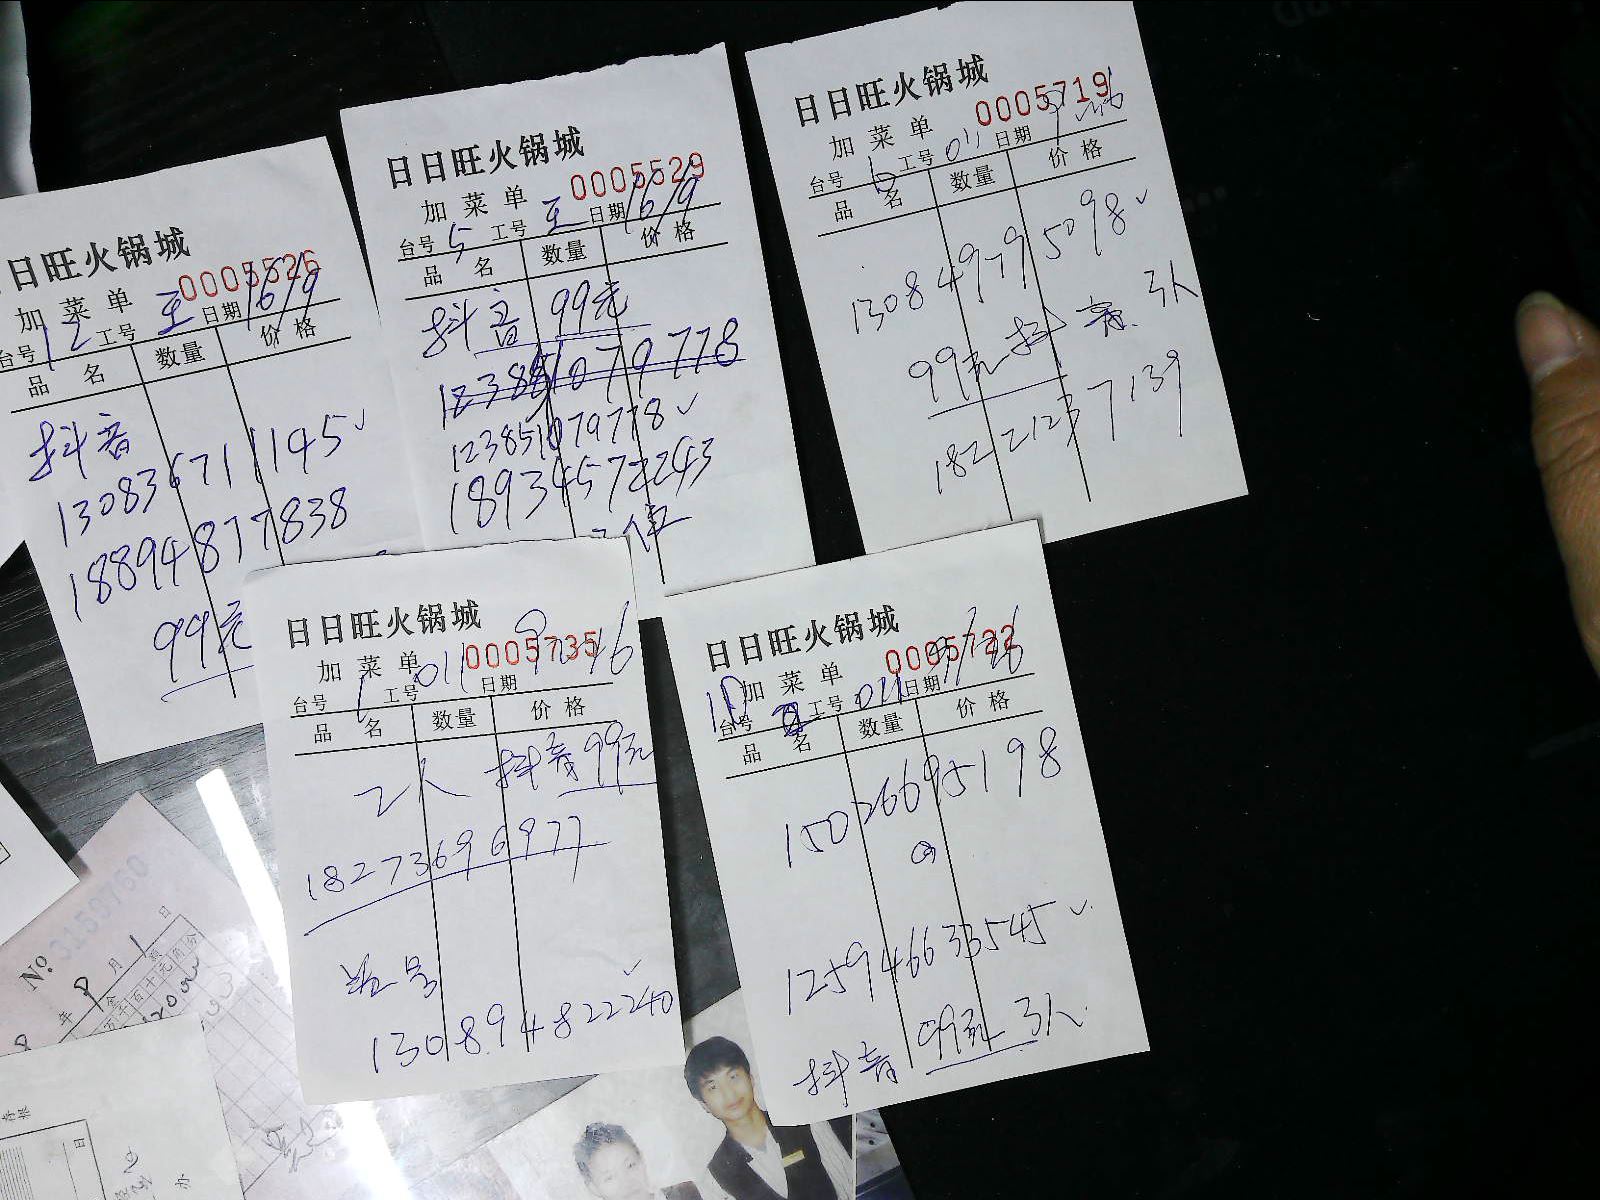 日日旺火锅城
0005526
加菜单
台号 12 工号 日期 16/9
品名 数量 价格
抖音
130836711145✓
18894877838
99元
日日旺火锅城
0005529
加菜单
台号 5 工号 日期 16/9
品名 数量 价格
抖音 99元
123851079778
123851079778✓
18934572243
日日旺火锅城
0005719
加菜单
台号 6 工号 011 日期
品名 数量 价格
130849795098✓
99元 抖音 3人
18221237139
日日旺火锅城
0005735
加菜单
台号 1 工号 011 日期
品名 数量 价格
2人 抖音99元
18273696977
券号
130894822240✓
日日旺火锅城
0005722
加菜单
台号 10 工号 011 日期
品名 数量 价格
15026695198
125946633545✓
抖音 99元 3人
No. 3153760
年 9 月 1 日
存根